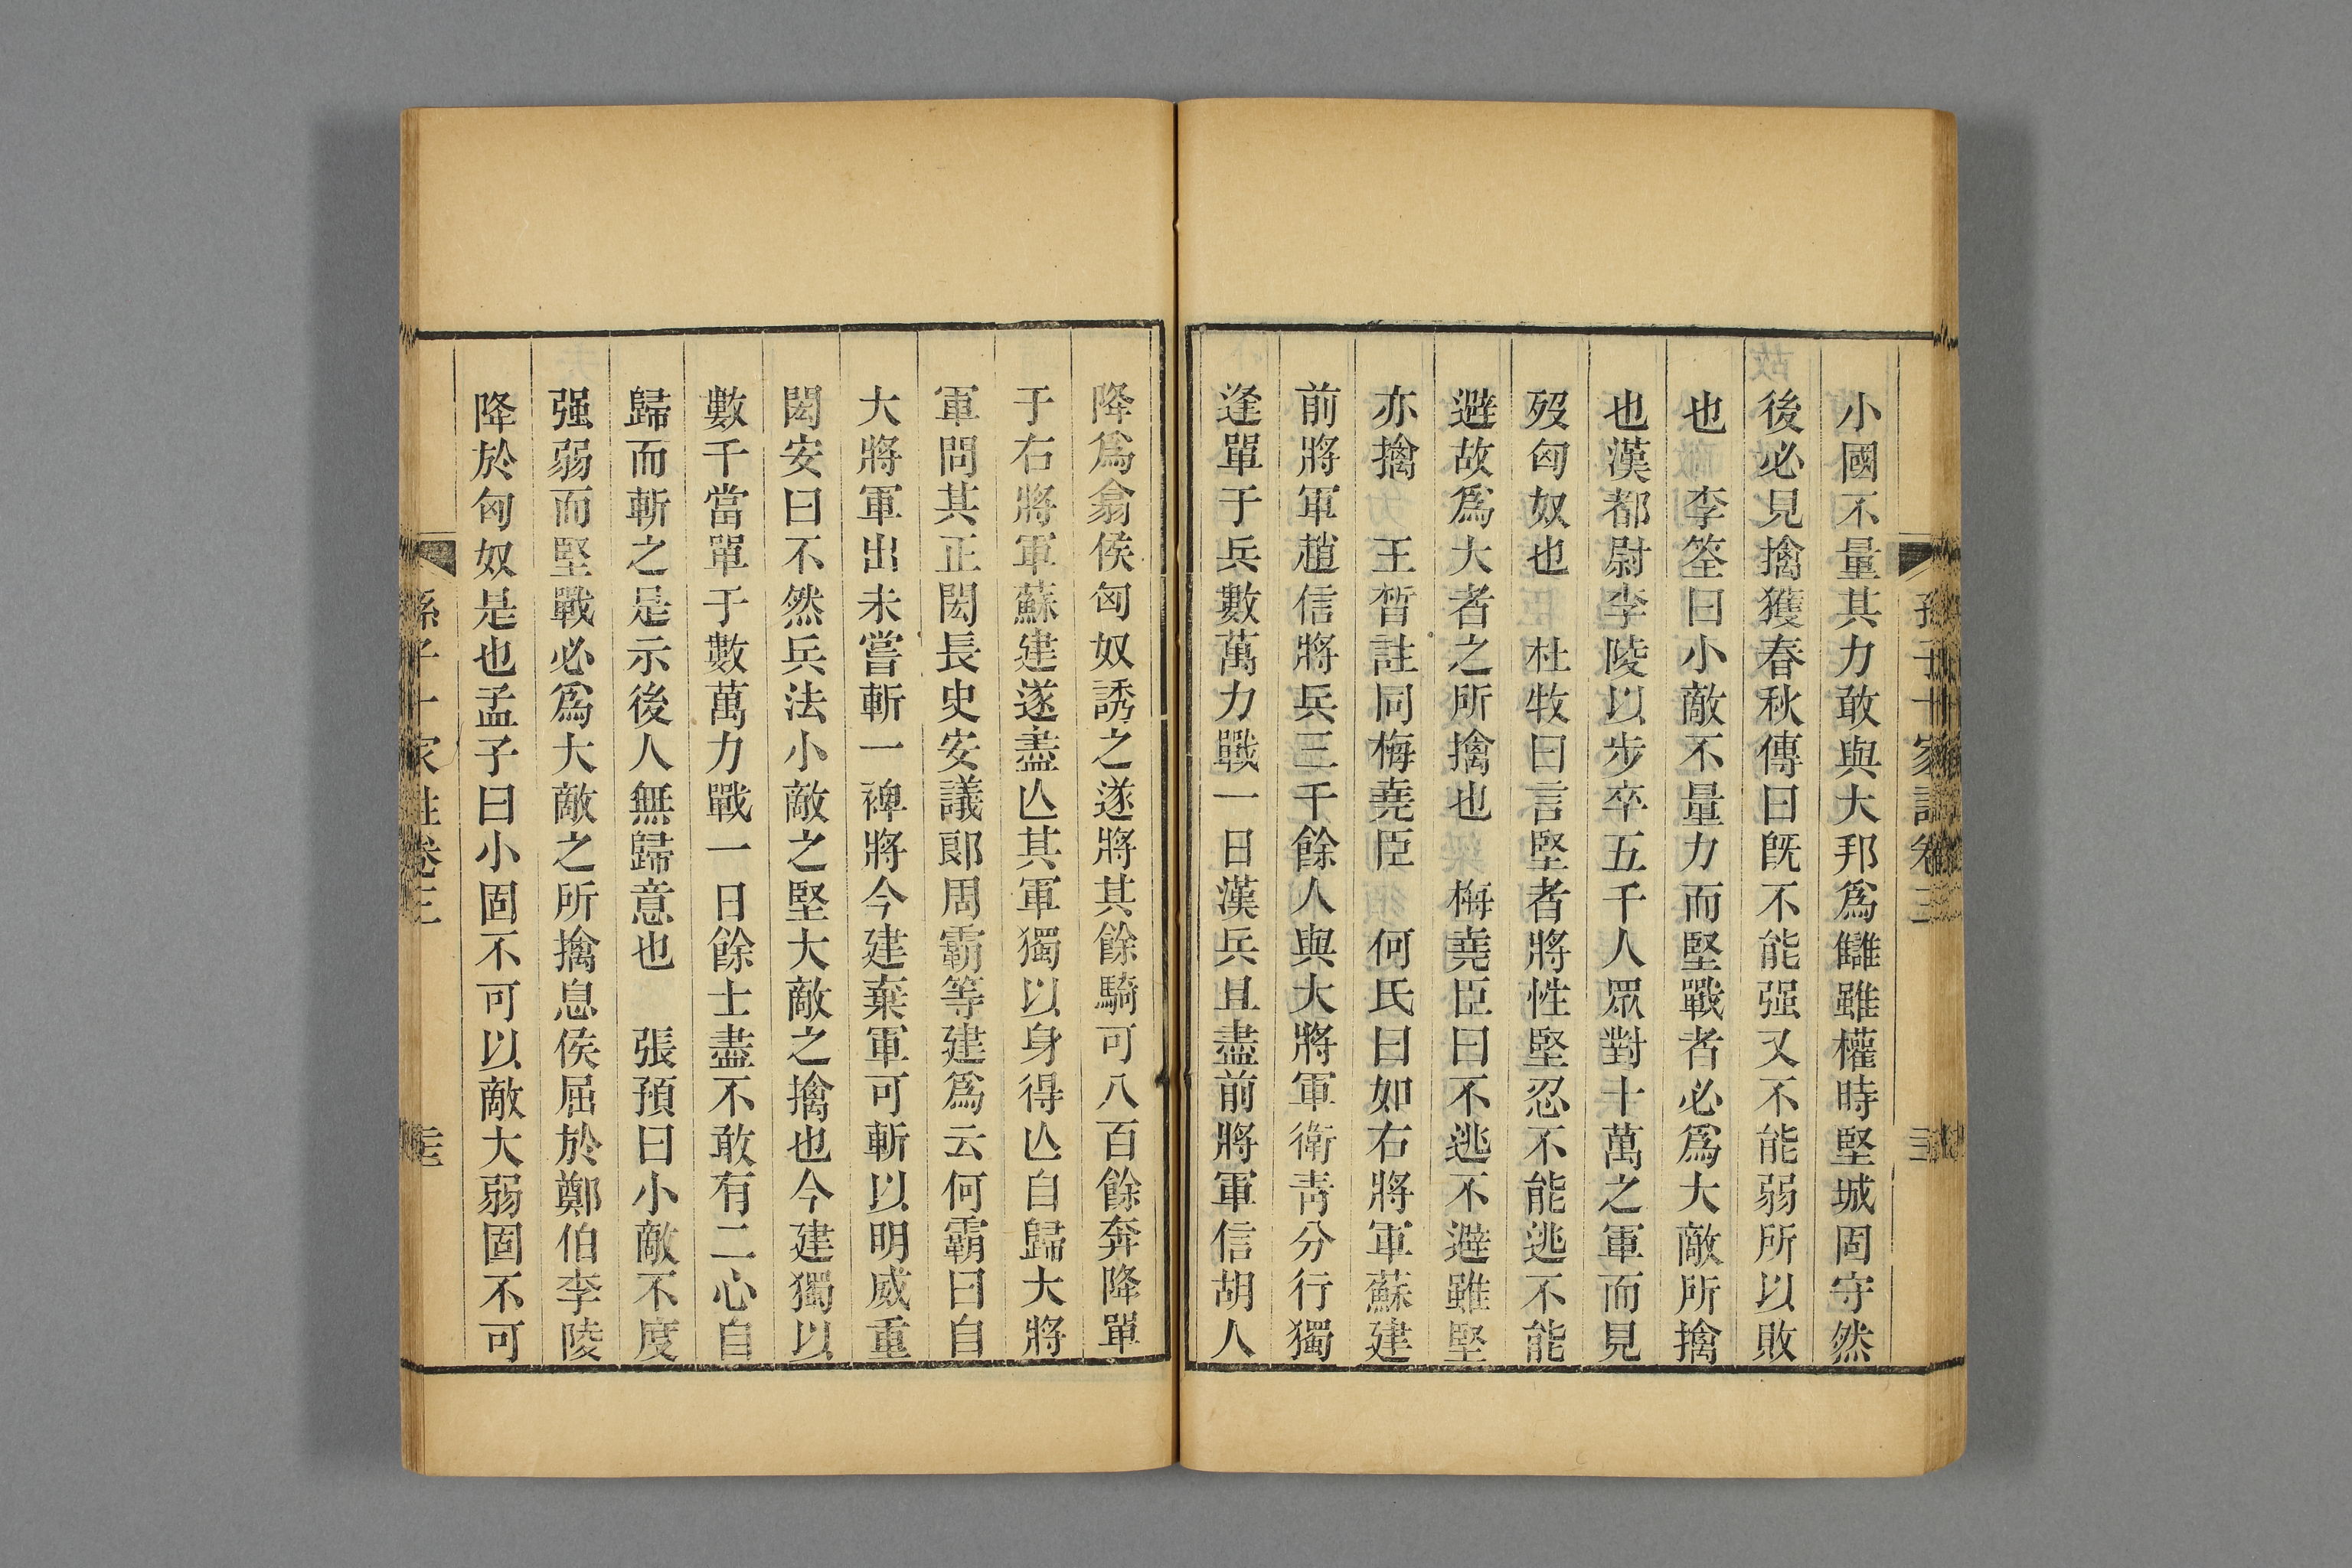 孫子十家註卷三
小國不量其力敢與大邦爲讎雖權時堅城固守然
後必見擒獲春秋傳曰旣不能强又不能弱所以敗
也 李筌曰小敵不量力而堅戰者必爲大敵所擒
也漢都尉李陵以步卒五千人眾對十萬之軍而見
歿匈奴也 杜牧曰言堅者將性堅忍不能逃不能
避故爲大者之所擒也 梅堯臣曰不逃不避雖堅
亦擒 王晳註同梅堯臣 何氏曰如右將軍蘇建
前將軍趙信將兵三千餘人與大將軍衛青分行獨
逢單于兵數萬力戰一日漢兵且盡前將軍信胡人
降爲翕侯匈奴誘之遂將其餘騎可八百餘奔降單
于右將軍蘇建遂盡亾其軍獨以身得亾自歸大將
軍問其正閎長史安議郞周霸等建爲云何霸曰自
大將軍出未嘗斬一裨將今建棄軍可斬以明威重
閎安曰不然兵法小敵之堅大敵之擒也今建獨以
數千當單于數萬力戰一日餘士盡不敢有二心自
歸而斬之是示後人無歸意也 張預曰小敵不度
强弱而堅戰必爲大敵之所擒息侯屈於鄭伯李陵
降於匈奴是也孟子曰小固不可以敵大弱固不可
孫子十家註卷三